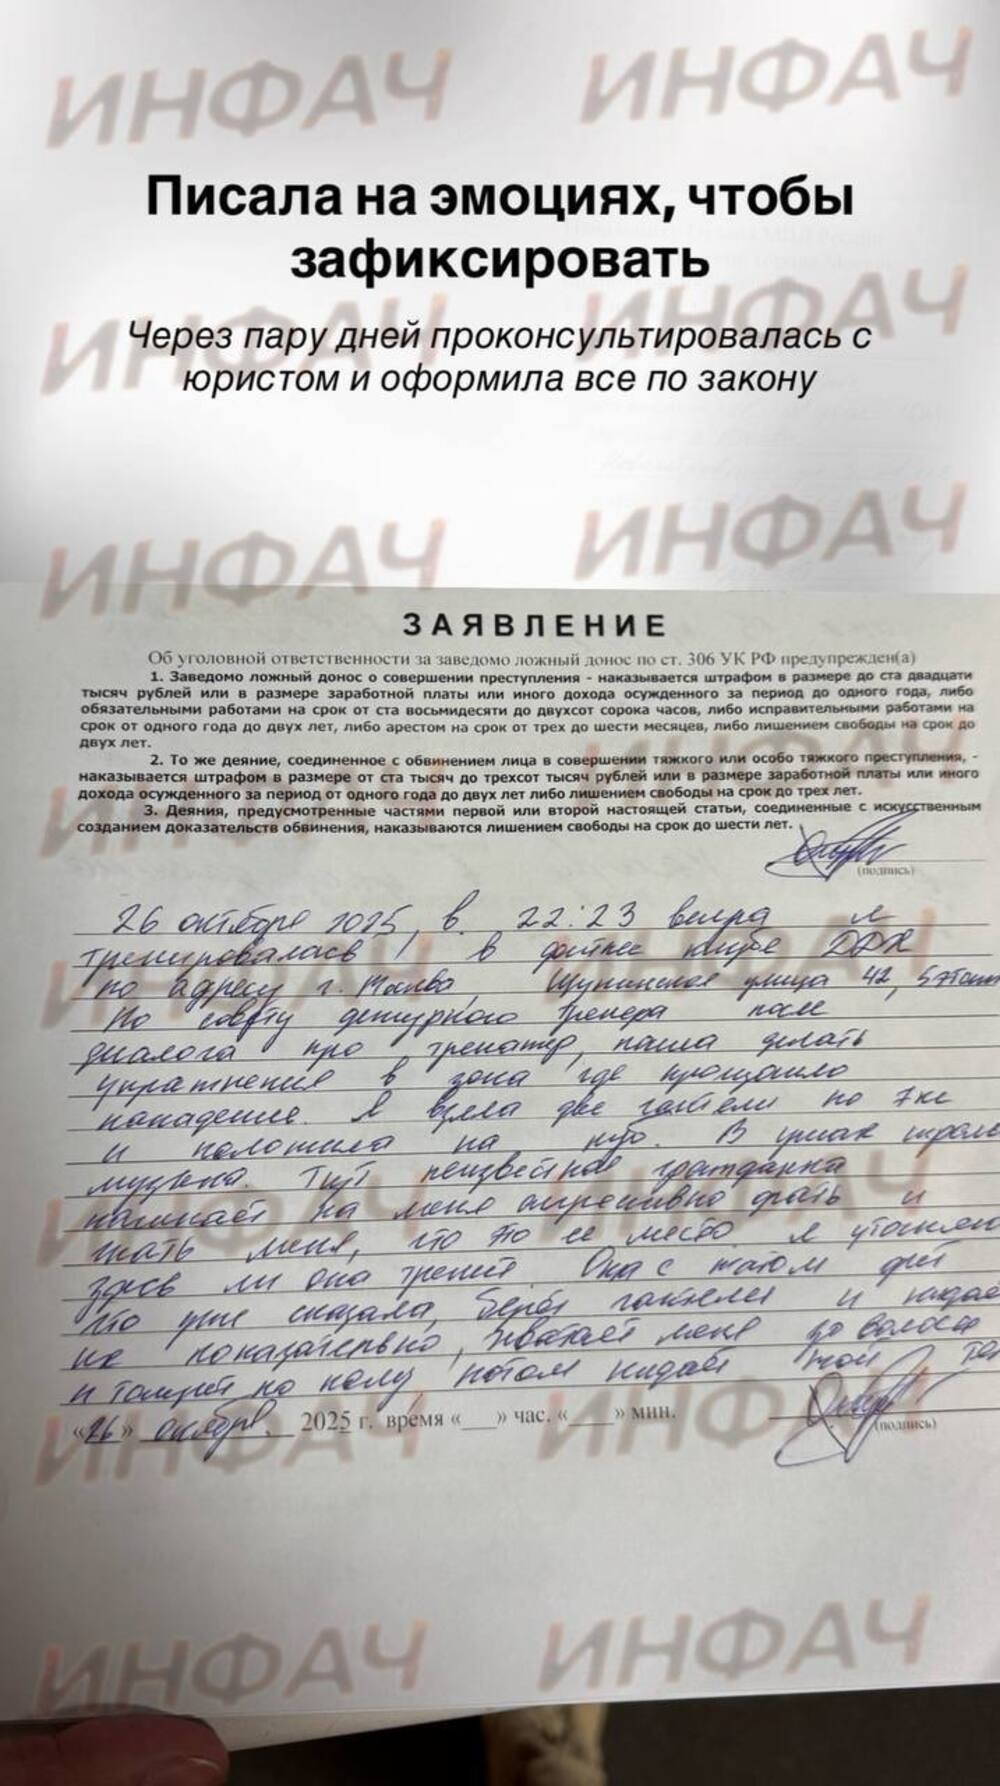 ИНФАЧ ИНФАЧ
Писала на эмоциях, чтобы
зафиксировать
ИНФАЧ ИНФАЧ
Через пару дней проконсультировалась с
юристом и оформила все по закону
ИНФАЧ ИНФАЧ
ЗАЯВЛЕНИЕ
Об уголовной ответственности за заведомо ложный донос по ст. 306 УК РФ предупрежден(а)
1. Заведомо ложный донос о совершении преступления - наказывается штрафом в размере до ста двадцати
тысяч рублей или в размере заработной платы или иного дохода осужденного за период до одного года, либо
обязательными работами на срок от ста восьмидесяти до двухсот сорока часов, либо исправительными работами на
срок от одного года до двух лет, либо арестом на срок от трех до шести месяцев, либо лишением свободы на срок до
двух лет.
2. То же деяние, соединенное с обвинением лица в совершении тяжкого или особо тяжкого преступления, -
наказывается штрафом в размере от ста тысяч до трехсот тысяч рублей или в размере заработной платы или иного
дохода осужденного за период от одного года до двух лет либо лишением свободы на срок до трех лет.
3. Деяния, предусмотренные частями первой или второй настоящей статьи, соединенные с искусственным
созданием доказательств обвинения, наказываются лишением свободы на срок до шести лет.
(подпись)
26 октября 2025, в 22:23 вечера я
тренировалась в фитнес клубе DDX
по адресу г. Москва, Щукинская улица 42, 5 этаж
По совету дежурного тренера после
диалога про тренажер, пошла делать
упражнения в зона где произошло
нападение. Я взяла две гантели по 7кг
и положила на пол. В ушах играла
музыка. Тут неизвестная гражданка
начинает на меня агрессивно орать и
меня, что это ее место. я уточняю
здесь ли она тренит. Она с матом
что уже сказала, берёт гантели и кидает
их показательно, хватает меня за волосы
и толкает по полу, потом кидает
«26» октября 2025 г. время «___» час. «___» мин.
(подпись)
ИНФАЧ ИНФАЧ